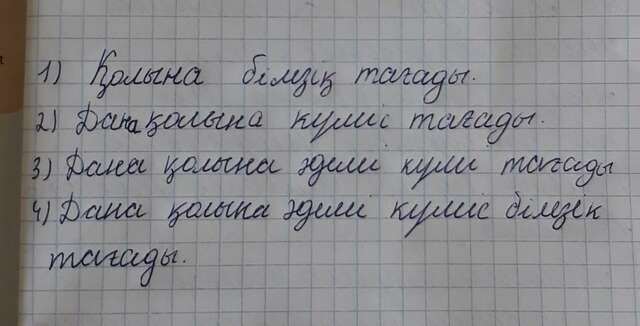 1) Қолына білезік тағады.
2) Дана қолына күміс тағады.
3) Дана қолына әдемі күмі тағады
4) Дана қолына әдемі күміс білезік
тағады.